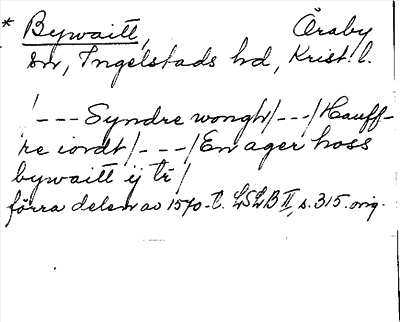 * Bywaitt, Öraby
sn, Ingelstads hd, Krist. l.
/---Syndre wongh/---/Hauff-
re iordt/---/En ager hoss
bywaitt ij tr/
förra delen av 1570-t. LSLB II, s. 315. orig.